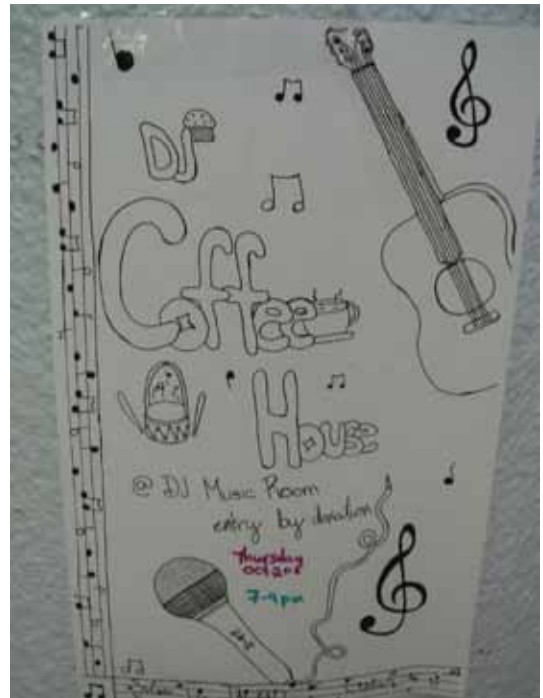 DJ
Coffee
House
@ DJ Music Room
entry by donation
Thursday